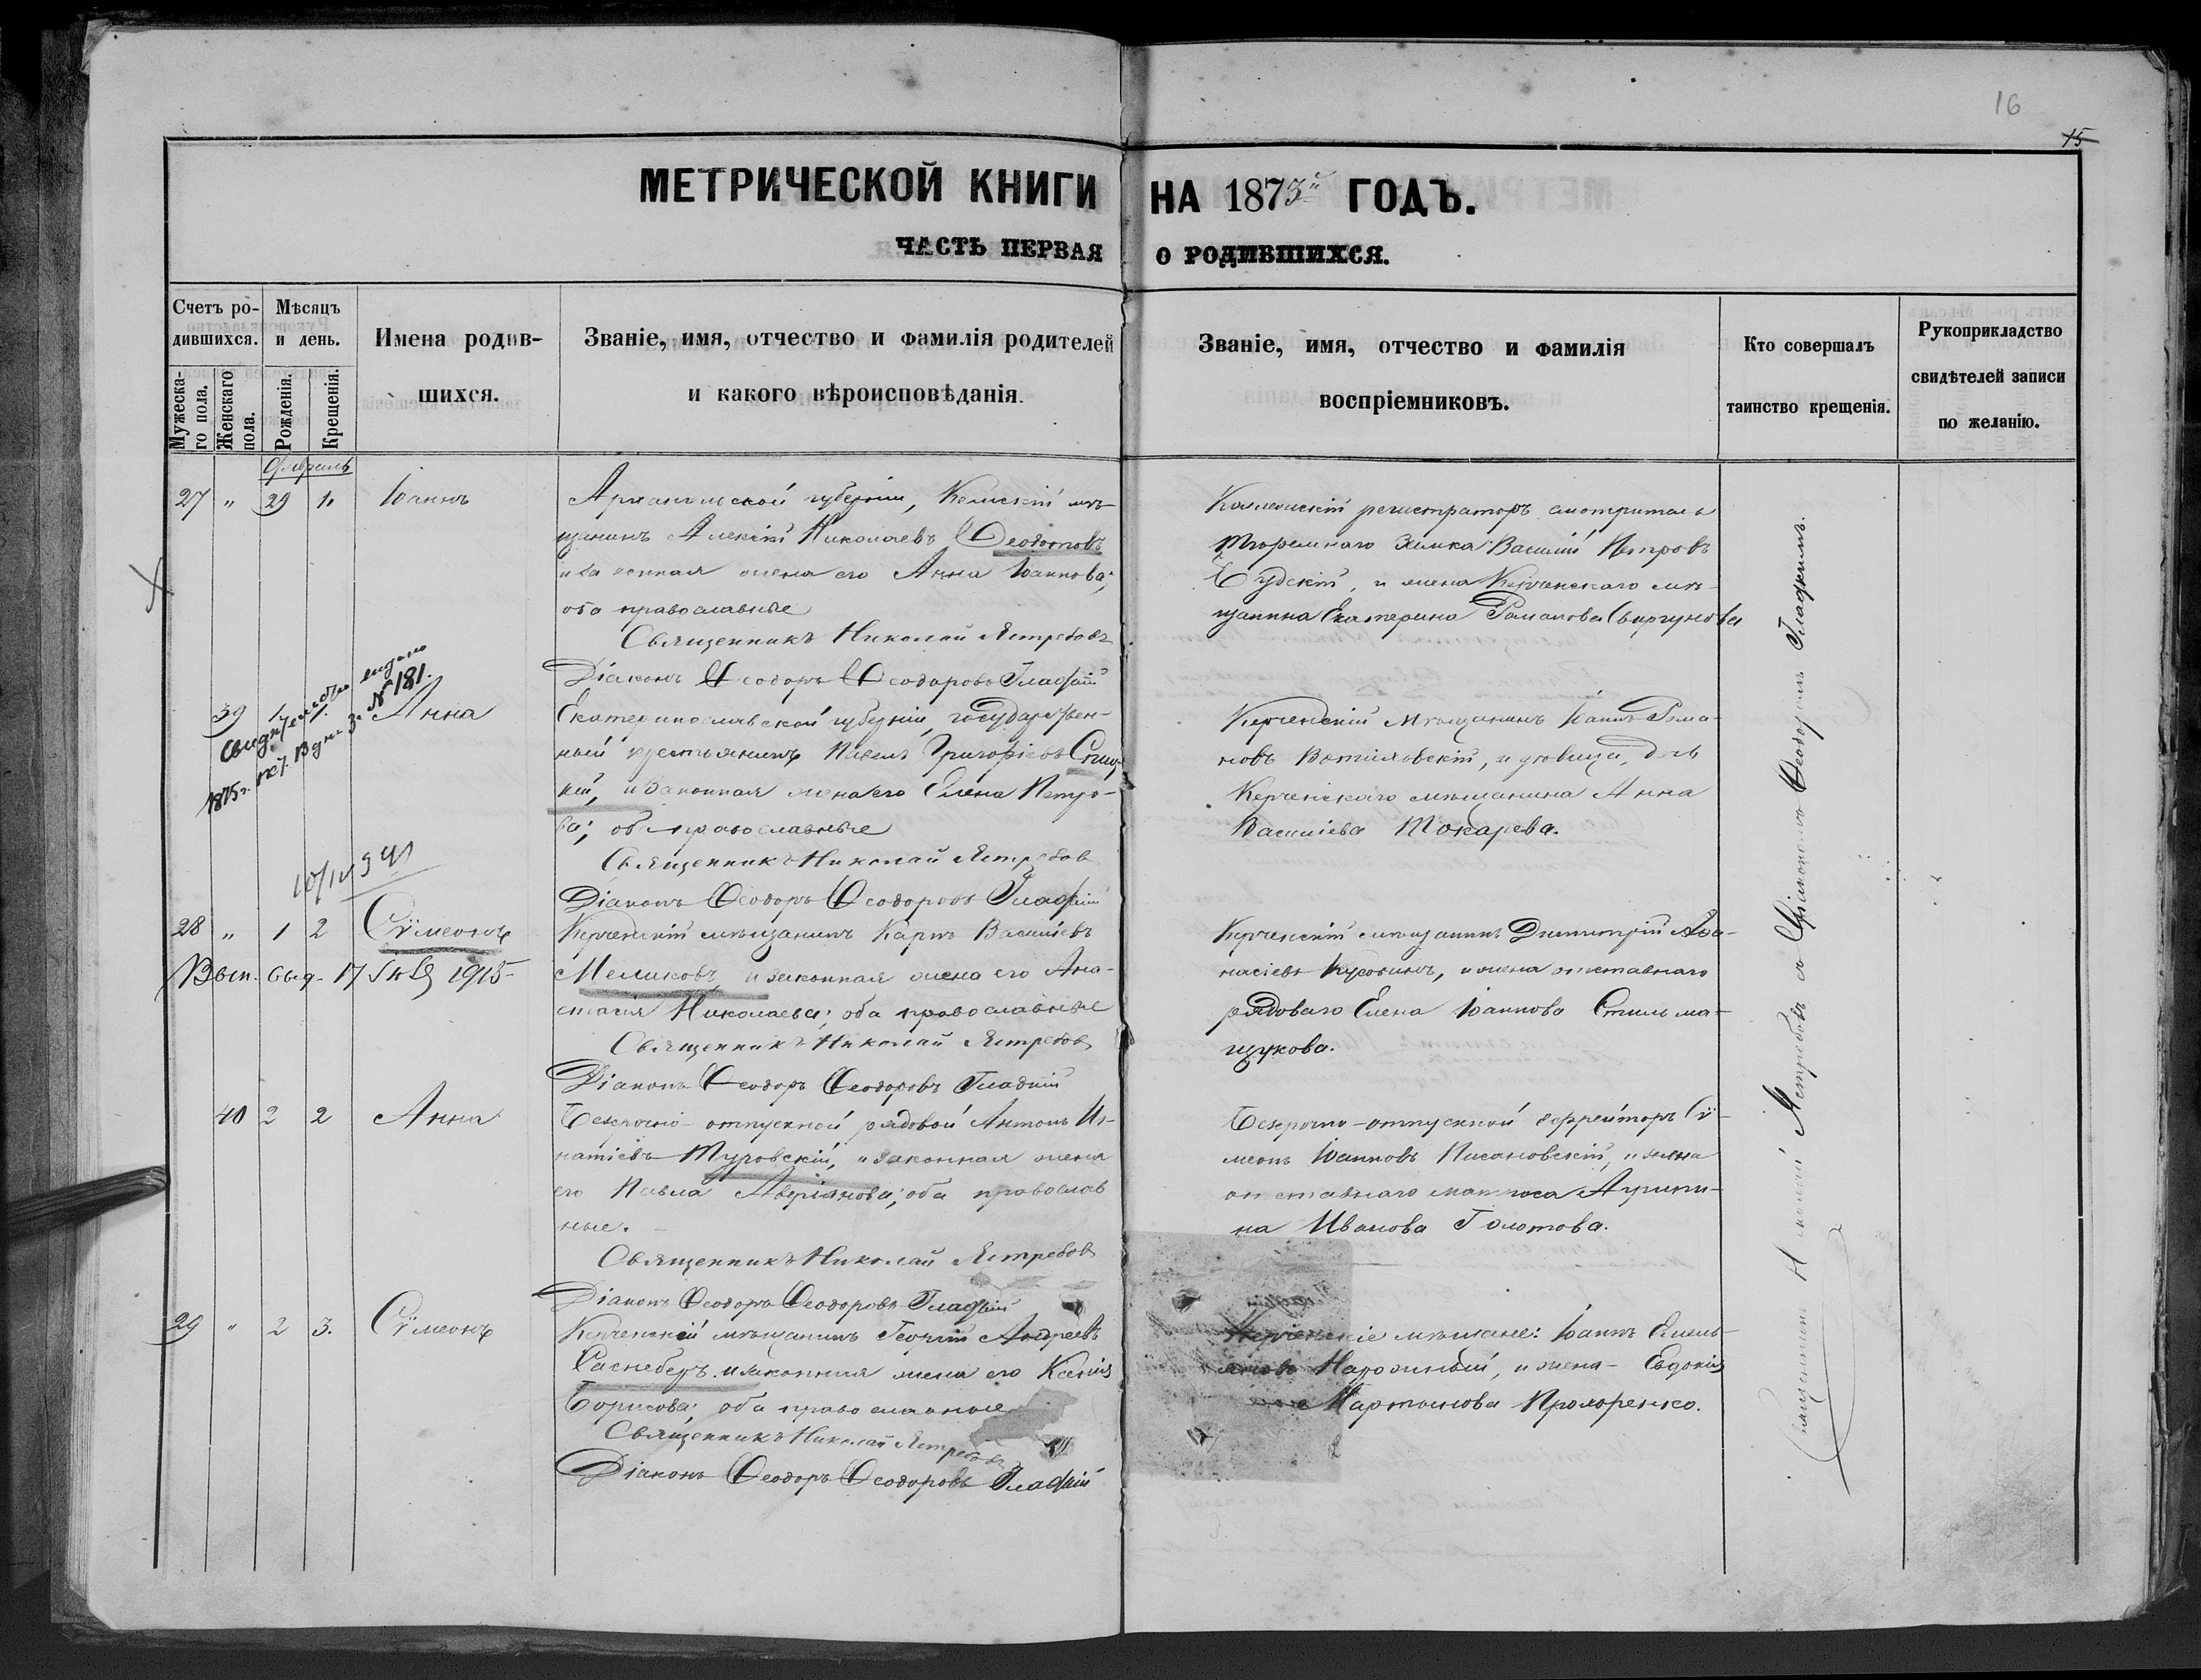 16
15
МЕТРИЧЕСКОЙ КНИГИ НА 1873й ГОДЪ.
ЧАСТЬ ПЕРВАЯ О РОДИВШИХСЯ.
Счетъ ро-
дившихся.
Мужеска-
го пола.
Женскаго
пола.
Мѣсяцъ
и день.
Рожденія.
Крещенія.
Имена родив-
шихся.
Званіе, имя, отчество и фамилія родителей
и какого вѣроисповѣданія.
Званіе, имя, отчество и фамилія
воспріемниковъ.
Кто совершалъ
таинство крещенія.
Рукоприкладство
свидѣтелей записи
по желанію.
Февраль
27 " 29 1 Іоаннъ
Архангельской губерніи, Кемскій мѣ-
щанинъ Алексій Николаевъ Ѳеодотовъ
и законная жена его Анна Іоаннова;
оба православные
Священникъ Николай Ястребовъ
Діаконъ Ѳеодоръ Ѳеодоровъ Гладкій
Коллежскій регистраторъ смотритель
тюремнаго замка Василій Петровъ
и жена Керченскаго мѣ-
щанина Екатерина Романова
39 1 1 Анна
Свидѣтельство выдано
1875 г. окт. 13 дня за № 181.
Екатеринославской губерніи, государствен-
ный крестьянинъ Павелъ Григоріевъ
кій, и законная жена его Елена Петро-
ва; оба православные
Священникъ Николай Ястребов
Діаконъ Ѳеодоръ Ѳеодоровъ Гладкій
Керченскій мѣщанинъ Іоаннъ Рома-
новъ и дѣвица, дочь
Керченскаго мѣщанина Анна
Василіева Токарева.
28 " 1 2 Сѵмеонъ
Вып. выд. 17 1915
Керченскій мѣщанинъ Карпъ Васильевъ
Мелиховъ, и законная жена его Ана-
стасія Николаева; оба православные
Священникъ Николай Ястребов
Діаконъ Ѳеодоръ Ѳеодоровъ Гладкій
Керченскій мѣщанинъ Димитрій Аѳа-
насіевъ и жена отставнаго
рядоваго Елена Іоаннова Стильма-
щукова.
40 2 2 Анна
Безсрочно-отпускной рядовой Антонъ Иг-
натіевъ Туровскій, и законная жена
его Павла Аверіанова; оба православ
ные.
Священникъ Николай Ястребов
Діаконъ Ѳеодоръ Ѳеодоровъ Гладкій
Безсрочно-отпускной ефрейторъ Сѵ-
меонъ Іоанновъ Писановскій, и жена
отставнаго матроса Агрипи-
на Иванова Болотова.
29 " 2 3. Сѵмеонъ
Керченскій мѣщанинъ Георгій Андреевъ
и законная жена его Ксенія
Борисова; оба православные
Священникъ Николай Ястребовъ
Діаконъ Ѳеодоръ Ѳеодоровъ Гладкій
Керченскіе мѣщане: Іоаннъ Емель-
яновъ и жена - Евдокія
Мартинова Прохоренко.
Священникъ Николай Ястребовъ съ Діакономъ Ѳеодоромъ Гладкимъ.